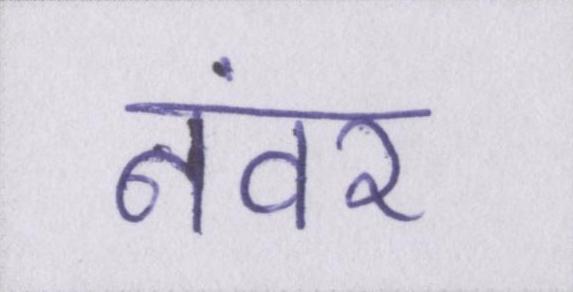 नंवर